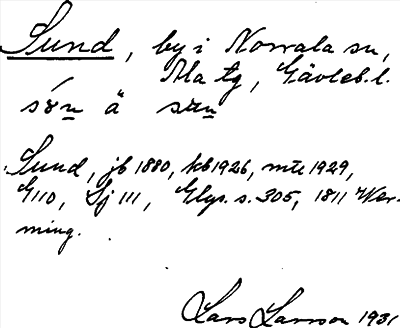 Sund, by i Norrala sn,
Ala tg, Gävleb. l.
sŏn ä sŏn
Sund, jb 1880, kb 1926, mtl 1929,
G 110, Sj 111, Glgs. s. 305, 1811 Wer-
ming.
Lars Larsson 1931